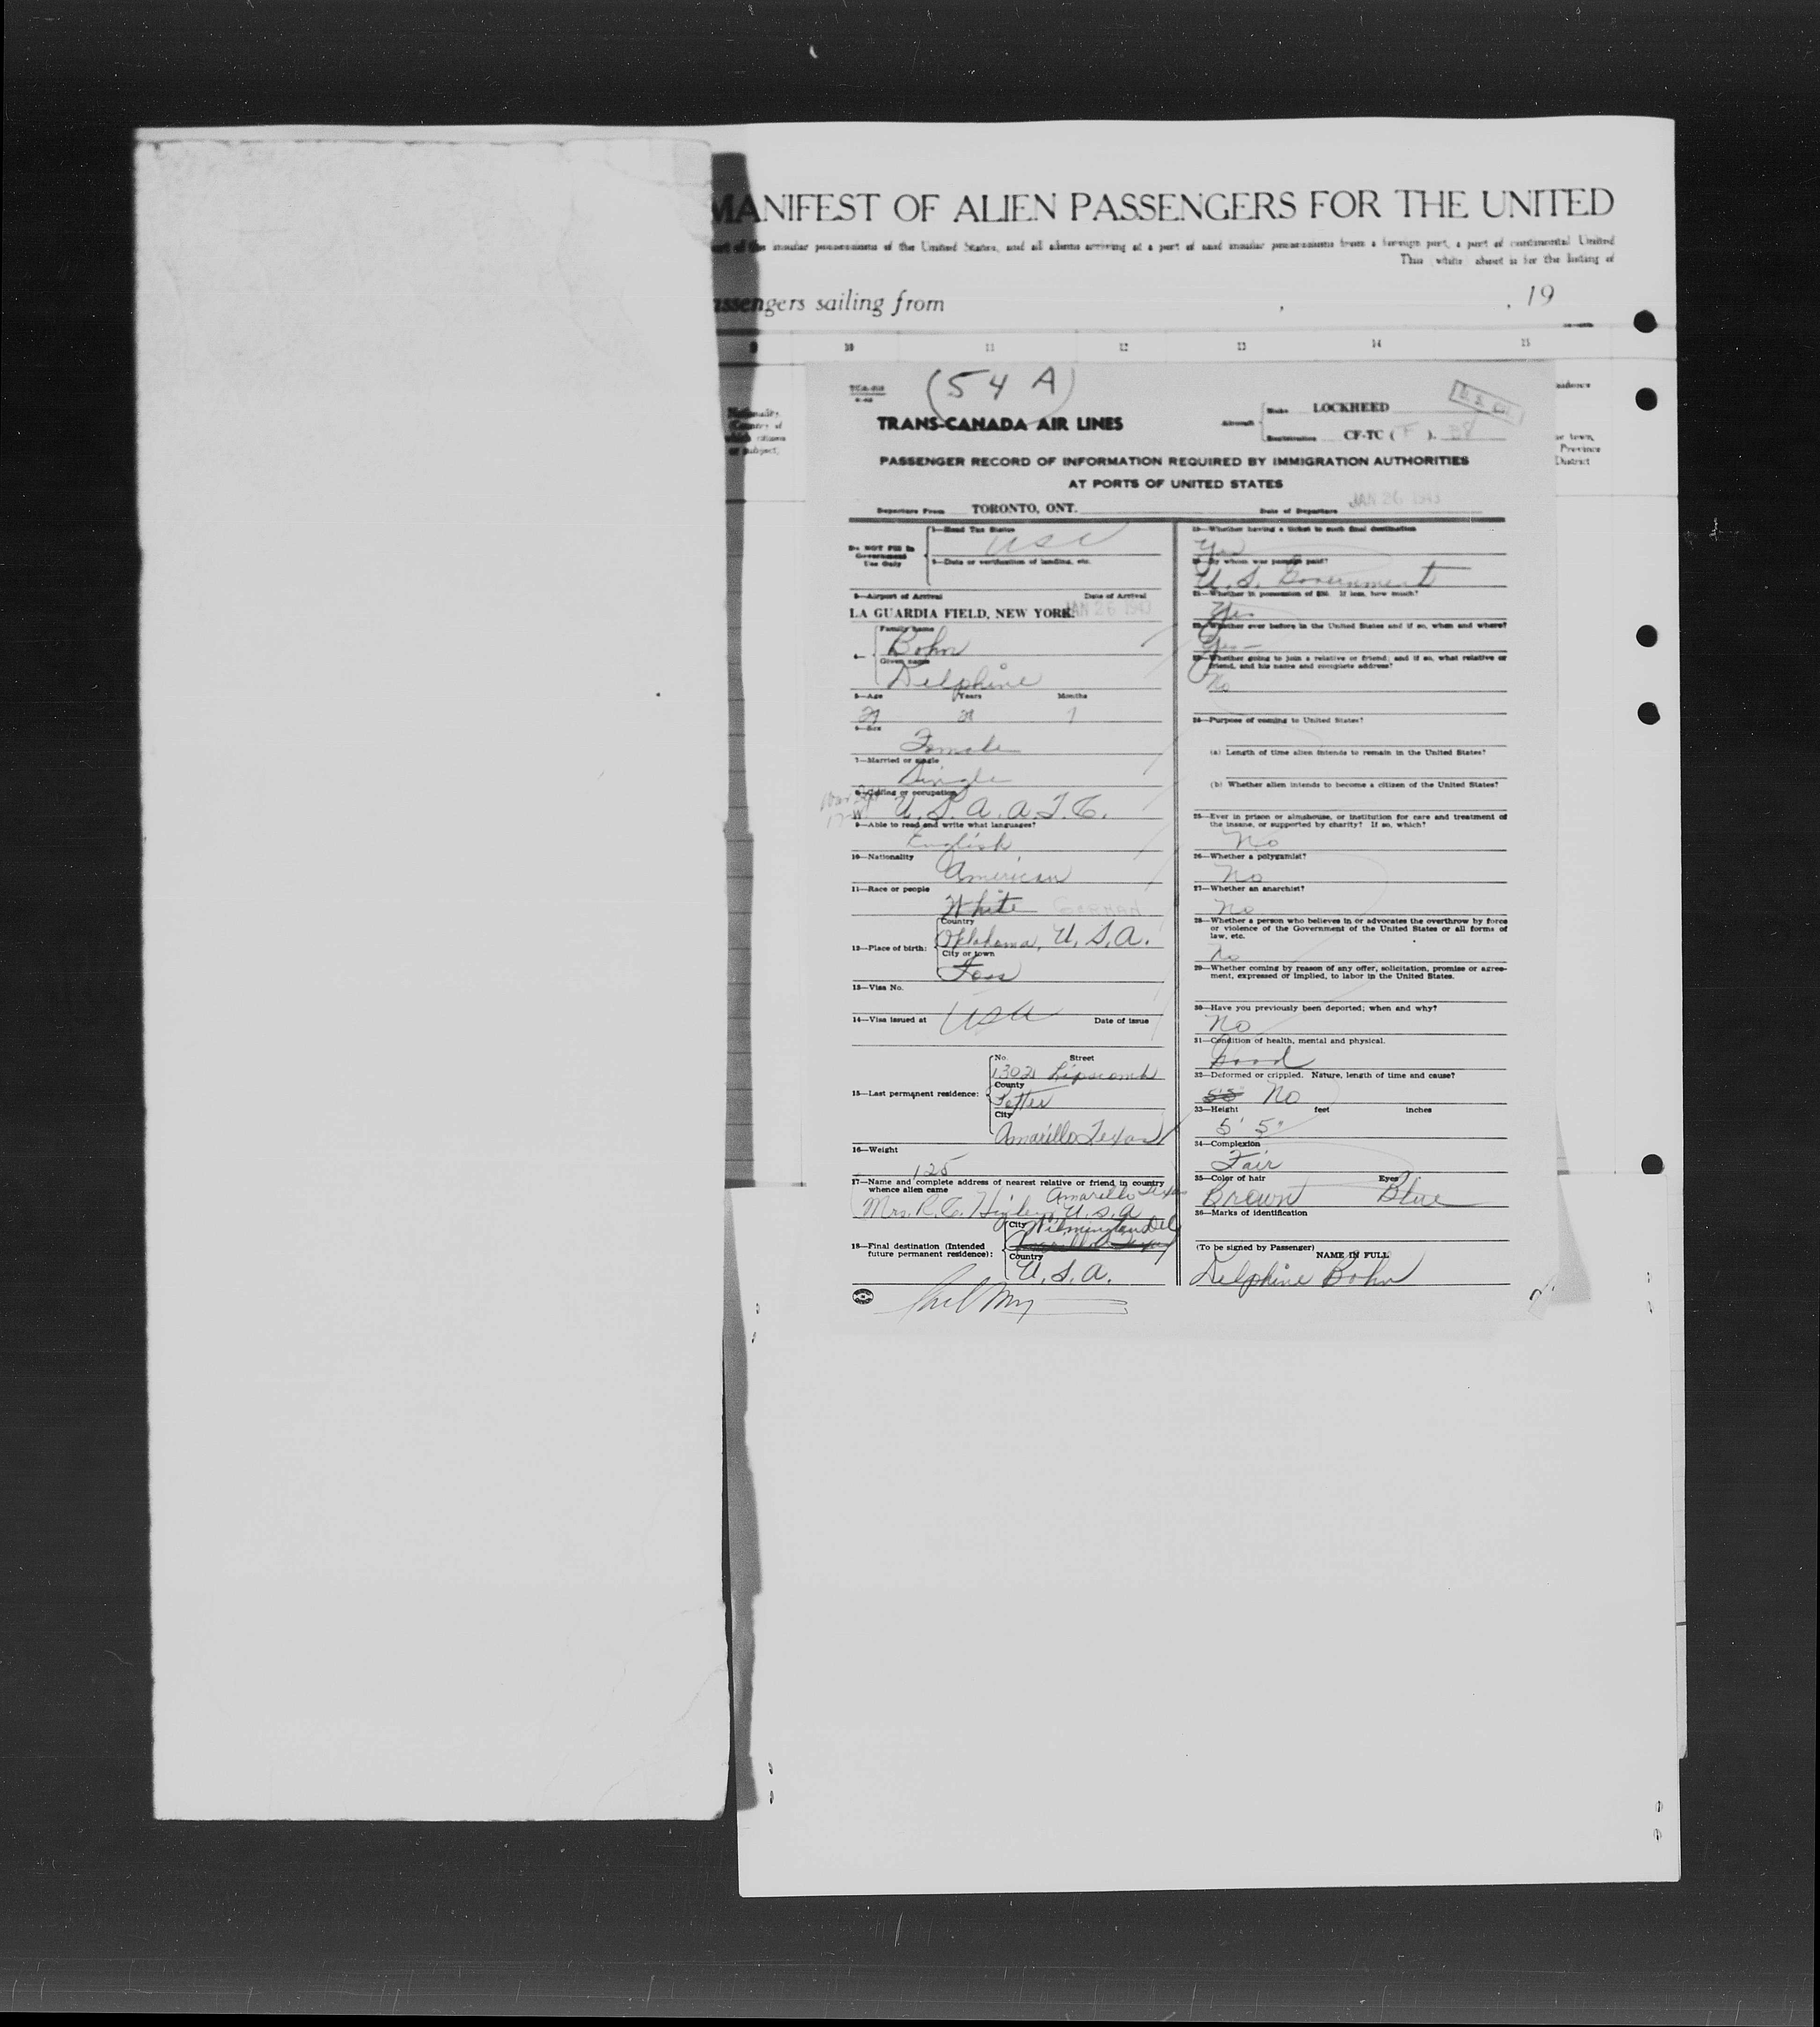 MANIFEST OF ALIEN PASSENGERS FOR THE UNITED
of the insular possessions of the United States, and all aliens arriving at a port of said insular possessions from a foreign port, a port of continental United
This (white) sheet is for the listing of
assengers sailing from , , 19
9 10 11 12 13 14 15
Nationality.
(Country of
which citizen
or subject)
town,
Province
District
(54 A)
TRANS-CANADA AIR LINES
Aircraft
Make LOCKHEED
Registration CF-TC ( F ).
PASSENGER RECORD OF INFORMATION REQUIRED BY IMMIGRATION AUTHORITIES
AT PORTS OF UNITED STATES
Departure From TORONTO, ONT. Date of Departure JAN 26 1943
Do NOT Fill In
Government
Use Only
1—Head Tax Status
USC
2—Date or verification of landing, etc.
3—Airport of Arrival Date of Arrival
LA GUARDIA FIELD, NEW YORK. JAN 26 1943
4—
Family name
Bohn
Given name
Delphine
5—Age Years Months
6—Sex
Female
7—Married or single
Single
8—Calling or occupation
U. S. A. A. T. C.
9—Able to read and write what languages?
English
10—Nationality
American
11—Race or people
White GERMAN
12—Place of birth:
Country
Oklahoma, U. S. A.
City or town
Foss
13—Visa No.
USA
14—Visa issued at Date of issue
15—Last permanent residence:
No. Street
1302 Lipscomb
County
Potter
City
Amarillo Texas
16—Weight
125
17—Name and complete address of nearest relative or friend in country
whence alien came
Amarillo Texas
Mrs. R. C. U. S. A
18—Final destination (Intended
future permanent residence):
City Wilmington Del
Amarillo Texas
Country
U. S. A.
19—Whether having a ticket to such final destination
Yes
20—By whom was passage paid?
U. S. Government
21—Whether in possession of $50. If less, how much?
Yes
22—Whether ever before in the United States and if so, when and where?
Yes —
23—Whether going to join a relative or friend; and if so, what relative or
friend, and his name and complete address?
No
24—Purpose of coming to United States?
(a) Length of time alien intends to remain in the United States?
(b) Whether alien intends to become a citizen of the United States?
25—Ever in prison or almshouse, or institution for care and treatment of
the insane, or supported by charity? If so, which?
No
26—Whether a polygamist?
No
27—Whether an anarchist?
No
28—Whether a person who believes in or advocates the overthrow by force
or violence of the Government of the United States or all forms of
law, etc.
No
29—Whether coming by reason of any offer, solicitation, promise or agree-
ment, expressed or implied, to labor in the United States.
30—Have you previously been deported; when and why?
No
31—Condition of health, mental and physical.
Good
32—Deformed or crippled. Nature, length of time and cause?
No
33—Height feet inches
5' 5"
34—Complexion
Fair
35—Color of hair Eyes
Brown Blue
36—Marks of identification
(To be signed by Passenger)
NAME IN FULL
Delphine Bohn